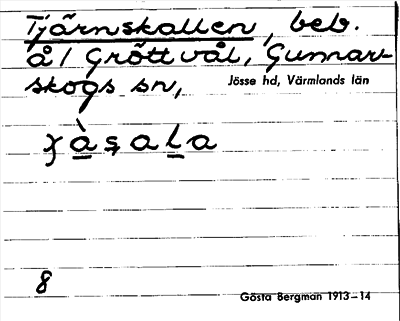 Tjärnskallen, beb.
å/ Gröttvål, Gunnar-
skogs sn, Jösse hd, Värmlands län
8
Gösta Bergman 1913–14